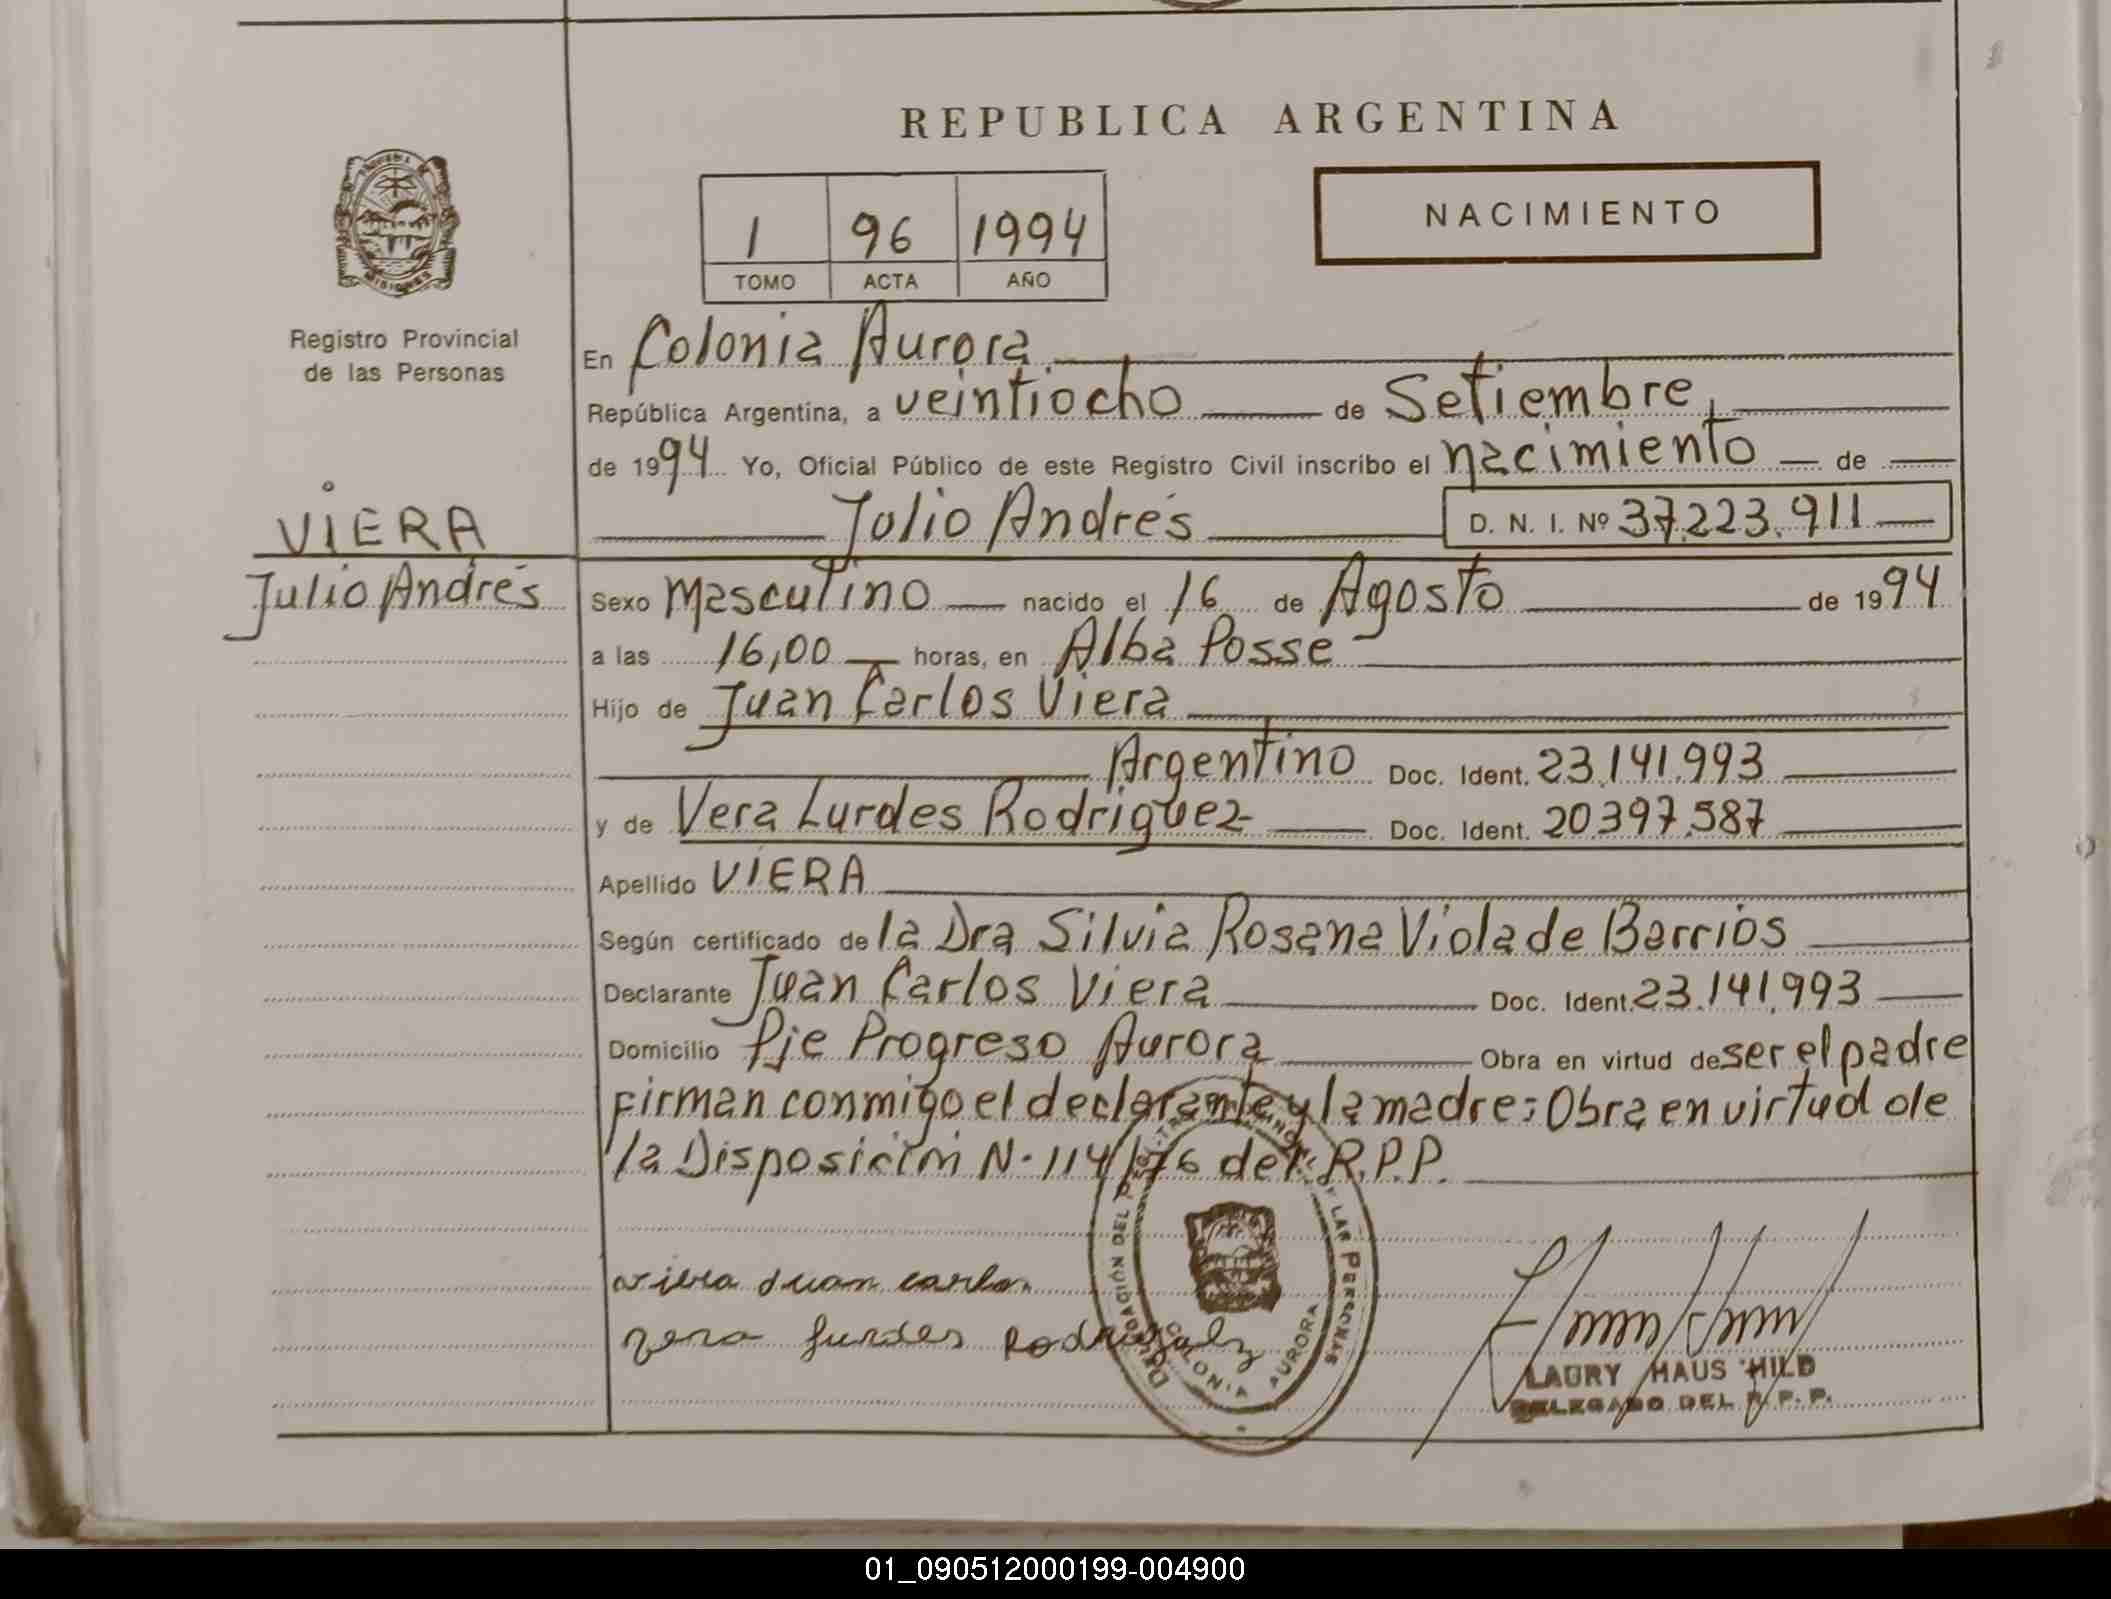 REPUBLICA ARGENTINA
1 96 1994
TOMO ACTA AÑO
NACIMIENTO
PROVINCIA DE MISIONES
Registro Provincial
de las Personas
VIERA
Julio Andrés
En Colonia Aurora
República Argentina, a veintiocho de Setiembre,
de 1994 Yo, Oficial Público de este Registro Civil inscribo el nacimiento de
Julio Andrés D. N. I. Nº 37.223.911
Sexo Masculino nacido el 16 de Agosto de 1994
a las 16,00 horas, en Alba Posse
Hijo de Juan Carlos Viera
Argentino Doc. Ident. 23.141.993
y de Vera Lurdes Rodriguez Doc. Ident. 20.397.587
Apellido VIERA
Según certificado de la Dra Silvia Rosana Viola de Barrios
Declarante Juan Carlos Viera Doc. Ident. 23.141.993
Domicilio Pje Progreso Aurora Obra en virtud de ser el padre
Firman conmigo el declarante y la madre: Obra en virtud de
la Disposición N. 114/76 del R.P.P.
viera Juan carlos
vera lurdes Rodriguez
DELEGACIÓN DEL DE LAS PERSONAS
COLONIA AURORA
LAURY HAUS HILD
DELEGADO DEL R. P. P.
01_090512000199-004900